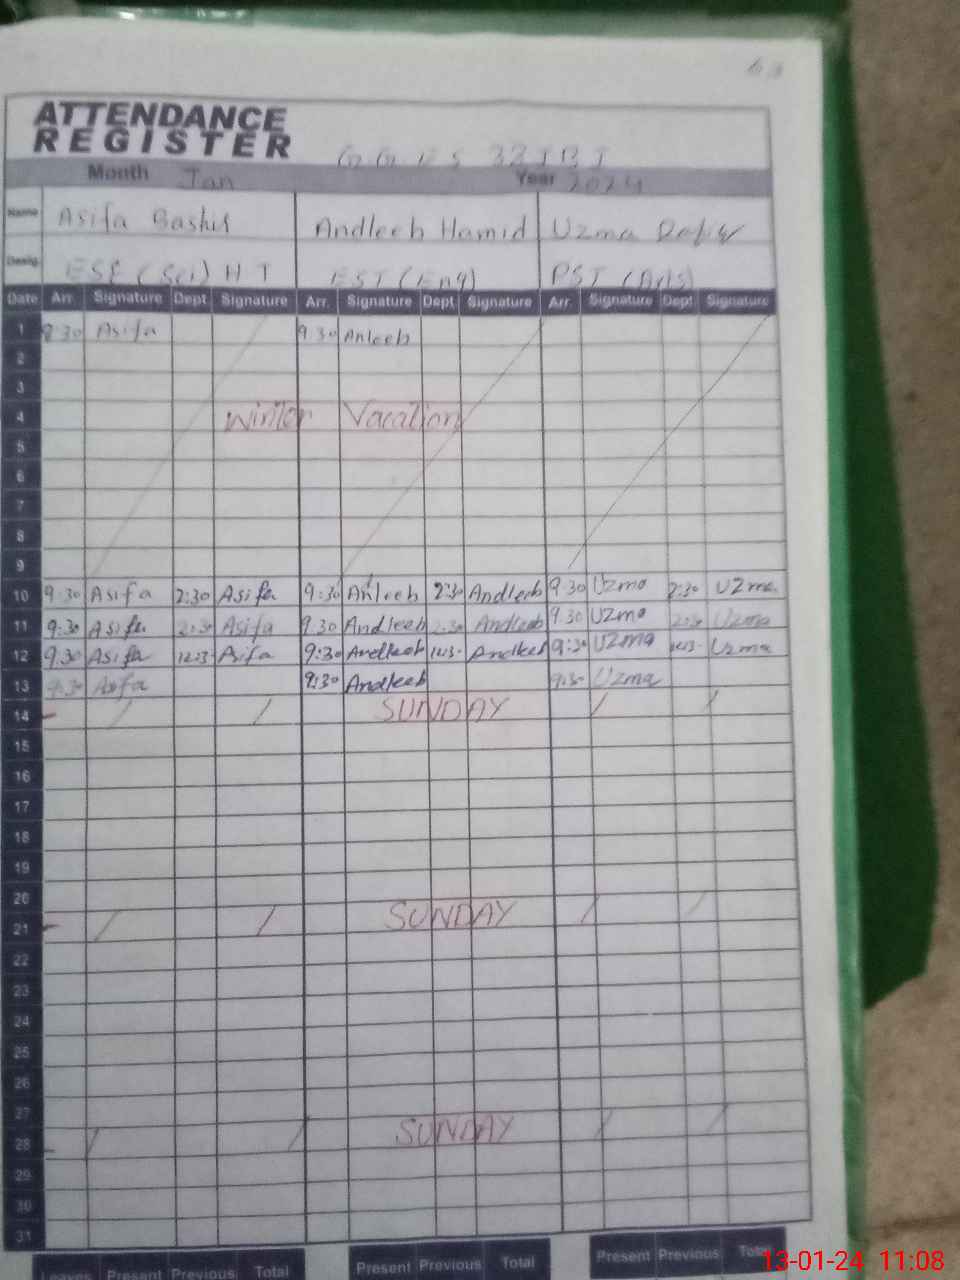 ATTENDANCE
REGISTER
Month Jan Year 2024
Name Asifa Bashir Andleeb Hamid Uzma Rafiq
Desig. EST (Sci) H T EST (Eng) PST (Arts)
Date Arr. Signature Dept Signature Arr. Signature Dept. Signature Arr. Signature Dept. Signature
1 9:30 Asifa 9:30 Anleeb
2
3
4 Winter Vacation
5
6
7
8
9
10 9:30 Asifa 2:30 Asifa 9:30 Anleeb 2:30 Andleeb 9:30 Uzma 2:30 Uzma
11 9:30 Asifa 2:30 Asifa 9:30 Andleeb 2:30 Andleeb 9:30 Uzma 2:30 Uzma
12 9:30 Asifa Asifa 9:30 Andleeb Andleeb 9:30 Uzma Uzma
13 9:30 Asifa 9:30 Andleeb 9:30 Uzma
14 SUNDAY
15
16
17
18
19
20
21 SUNDAY
22
23
24
25
26
27
28 SUNDAY
29
30
31
Leaves Present Previous Total Present Previous Total Present Previous Total
13-01-24 11:08